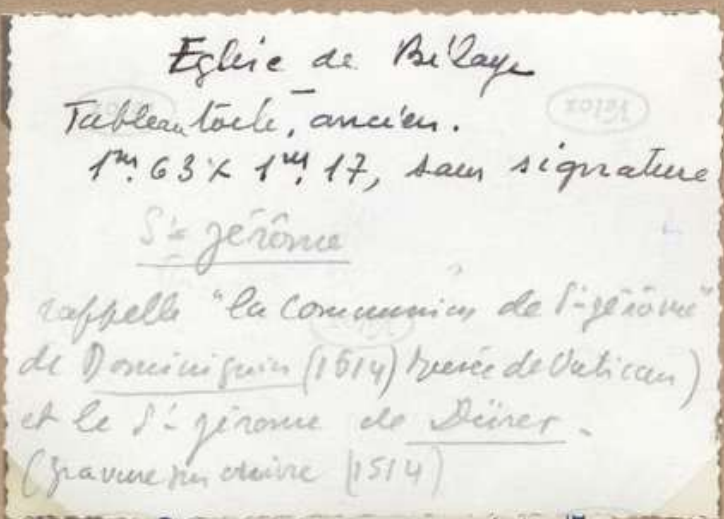 Eglise de Bélaye
Tableau toile, ancien.
1m.63 x 1m.17, sans signature
St Jérôme
rappelle "la communion de St gérôme"
de Dominiquin (1614) musée de Vatican)
et le St gérome de Dürer.
(gravure sur cuivre (1514)
Velox
Velox
Velox